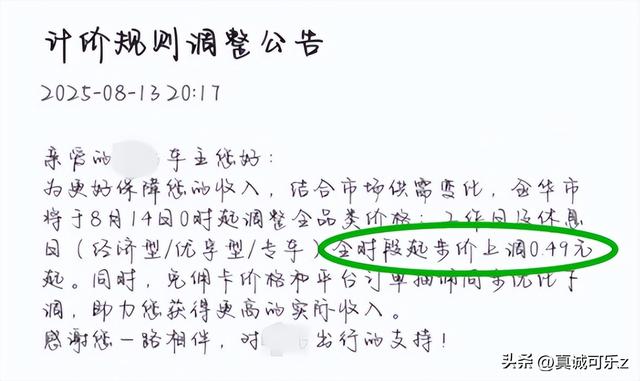 计价规则调整公告
2025-08-13 20:17
亲爱的 车主您好：
为更好保障您的收入，结合市场供需变化，金华市
将于8月14日0时起调整全品类价格：工作日及休息
日（经济型/优享型/专车）全时段起步价上调0.49元
起。同时，免佣卡价格和平台订单抽佣同步优化下
调，助力您获得更高的实际收入。
感谢您一路相伴，对 出行的支持！
头条 @真诚可乐z